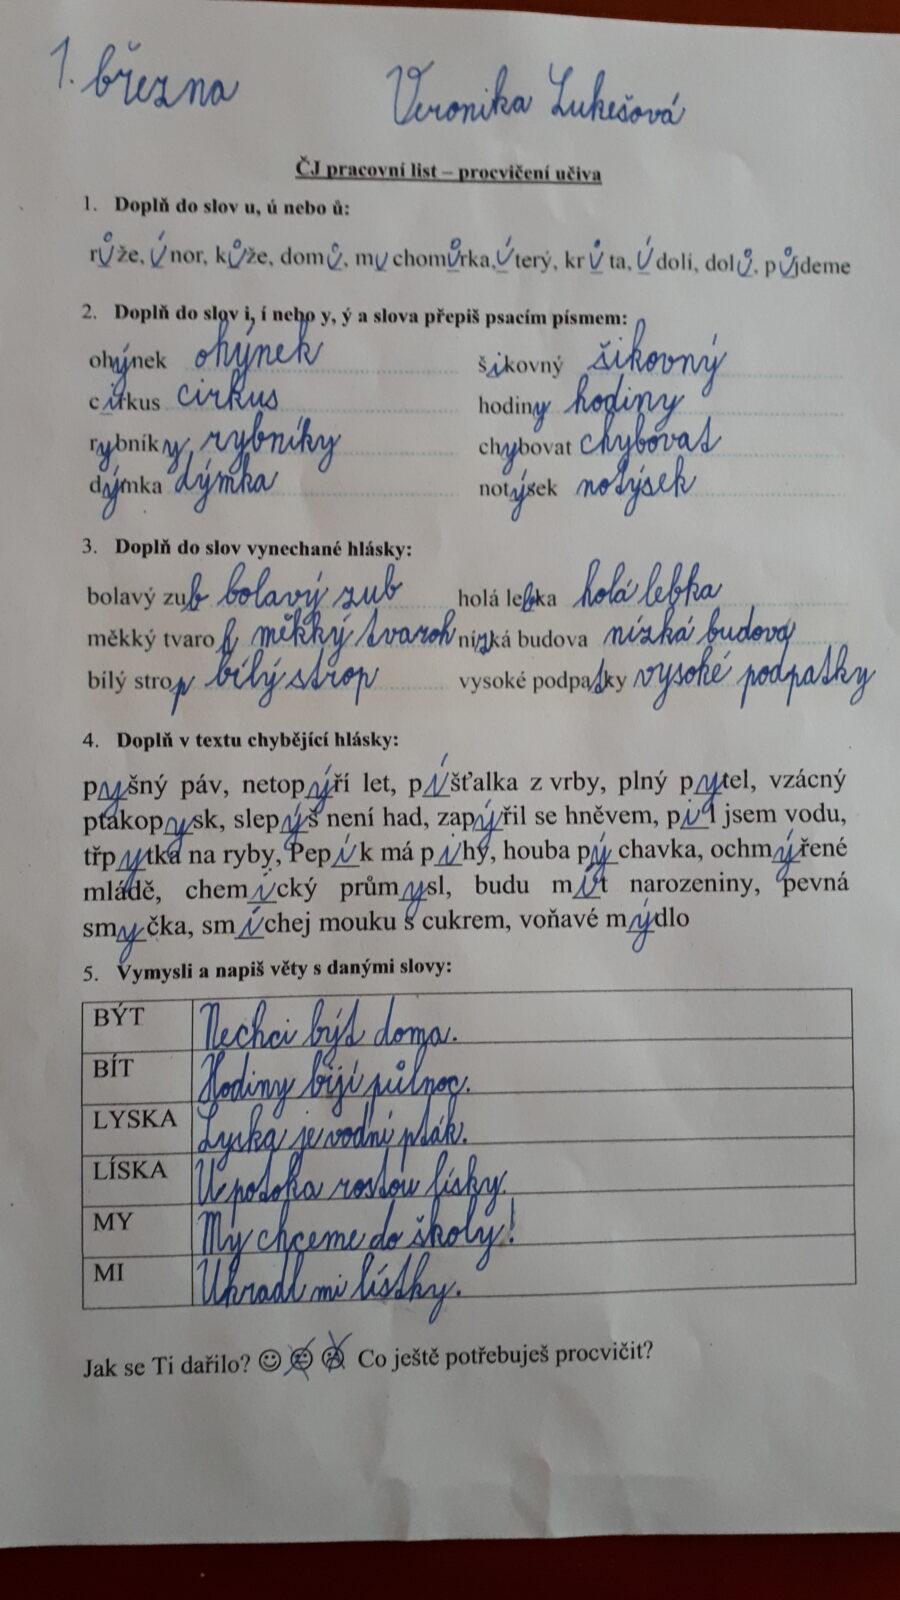 1. března Veronika Lukešová
ČJ pracovní list – procvičení učiva
1. Doplň do slov u, ú nebo ů:
růže, únor, kůže, domů, muchomůrka, úterý, krůta, údolí, dolů, půjdeme
2. Doplň do slov i, í nebo y, ý a slova přepiš psacím písmem:
ohýnek ohýnek šikovný šikovný
cirkus cirkus hodiny hodiny
rybníky, rybníky chybovat chybovat
dýmka dýmka notýsek notýsek
3. Doplň do slov vynechané hlásky:
bolavý zub bolavý zub holá lebka holá lebka
měkký tvaroh měkký tvaroh nízká budova nízká budova
bílý strop bílý strop vysoké podpatky vysoké podpatky
4. Doplň v textu chybějící hlásky:
pyšný páv, netopýří let, píšťalka z vrby, plný pytel, vzácný
ptakopysk, slepýš není had, zapýřil se hněvem, pil jsem vodu,
třpytka na ryby, Pepík má pihy, houba pýchavka, ochmýřené
mládě, chemický průmysl, budu mít narozeniny, pevná
smyčka, smíchej mouku s cukrem, voňavé mýdlo
5. Vymysli a napiš věty s danými slovy:
BÝT Nechci být doma.
BÍT Hodiny bijí půlnoc.
LYSKA Lyska je vodní pták.
LÍSKA U potoka rostou lísky.
MY My chceme do školy!
MI Ukradl mi lístky.
Jak se Ti dařilo? Co ještě potřebuješ procvičit?